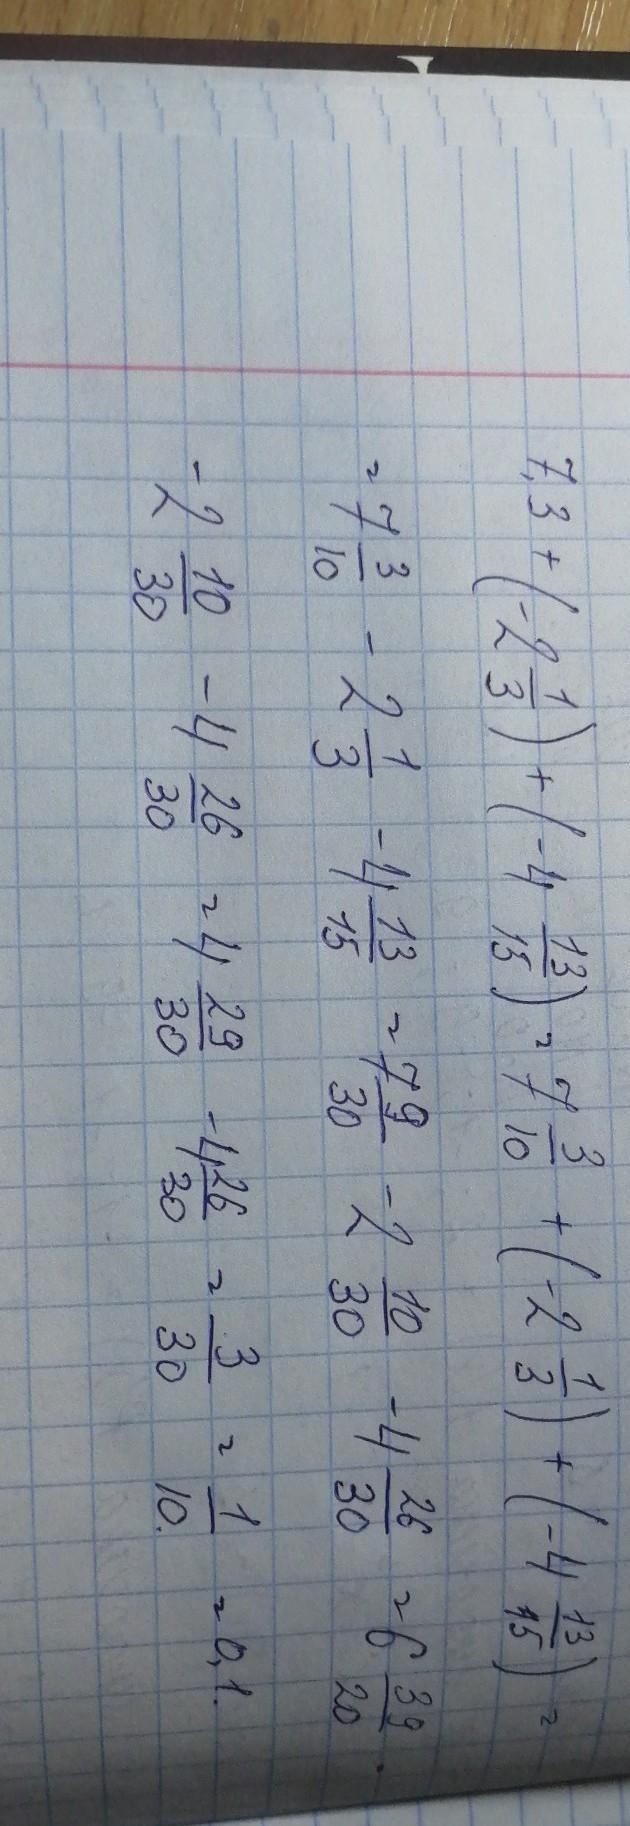 7,3 + (-2 1/3) + (-4 13/15) = 7 3/10 + (-2 1/3) + (-4 13/15) =
= 7 3/10 - 2 1/3 - 4 13/15 = 7 9/30 - 2 10/30 - 4 26/30 = 6 39/20
- 2 10/30 - 4 26/30 = 4 29/30 - 4 26/30 = 3/30 = 1/10. = 0,1.